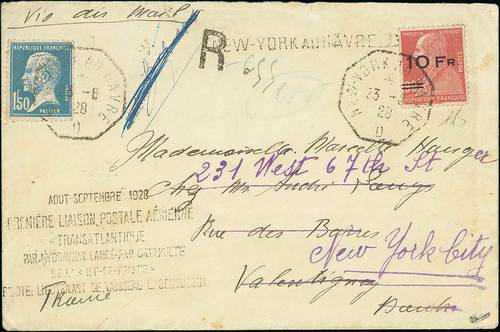 Via air mail
RÉPUBLIQUE FRANÇAISE
1F50
NEW-YORK AU HAVRE
23-8
28
D
R
NEW-YORK AU HAVRE
10 FR
RÉPUBLIQUE FRANÇAISE
NEW-YORK AU HAVRE
23
28
D
Mademoiselle Marcelle
231 West 67th St
Chez Mr André
Rue des
New York City
Valentigney
Doubs
AOUT-SEPTEMBRE 1928
PREMIÈRE LIAISON POSTALE AÉRIENNE
TRANSATLANTIQUE
PAR HYDRAVION LANCÉ PAR CATAPULTE
DE L' « ILE-DE-FRANCE »
PILOTE: LIEUTENANT DE VAISSEAU L. DEMOUGEOT
France